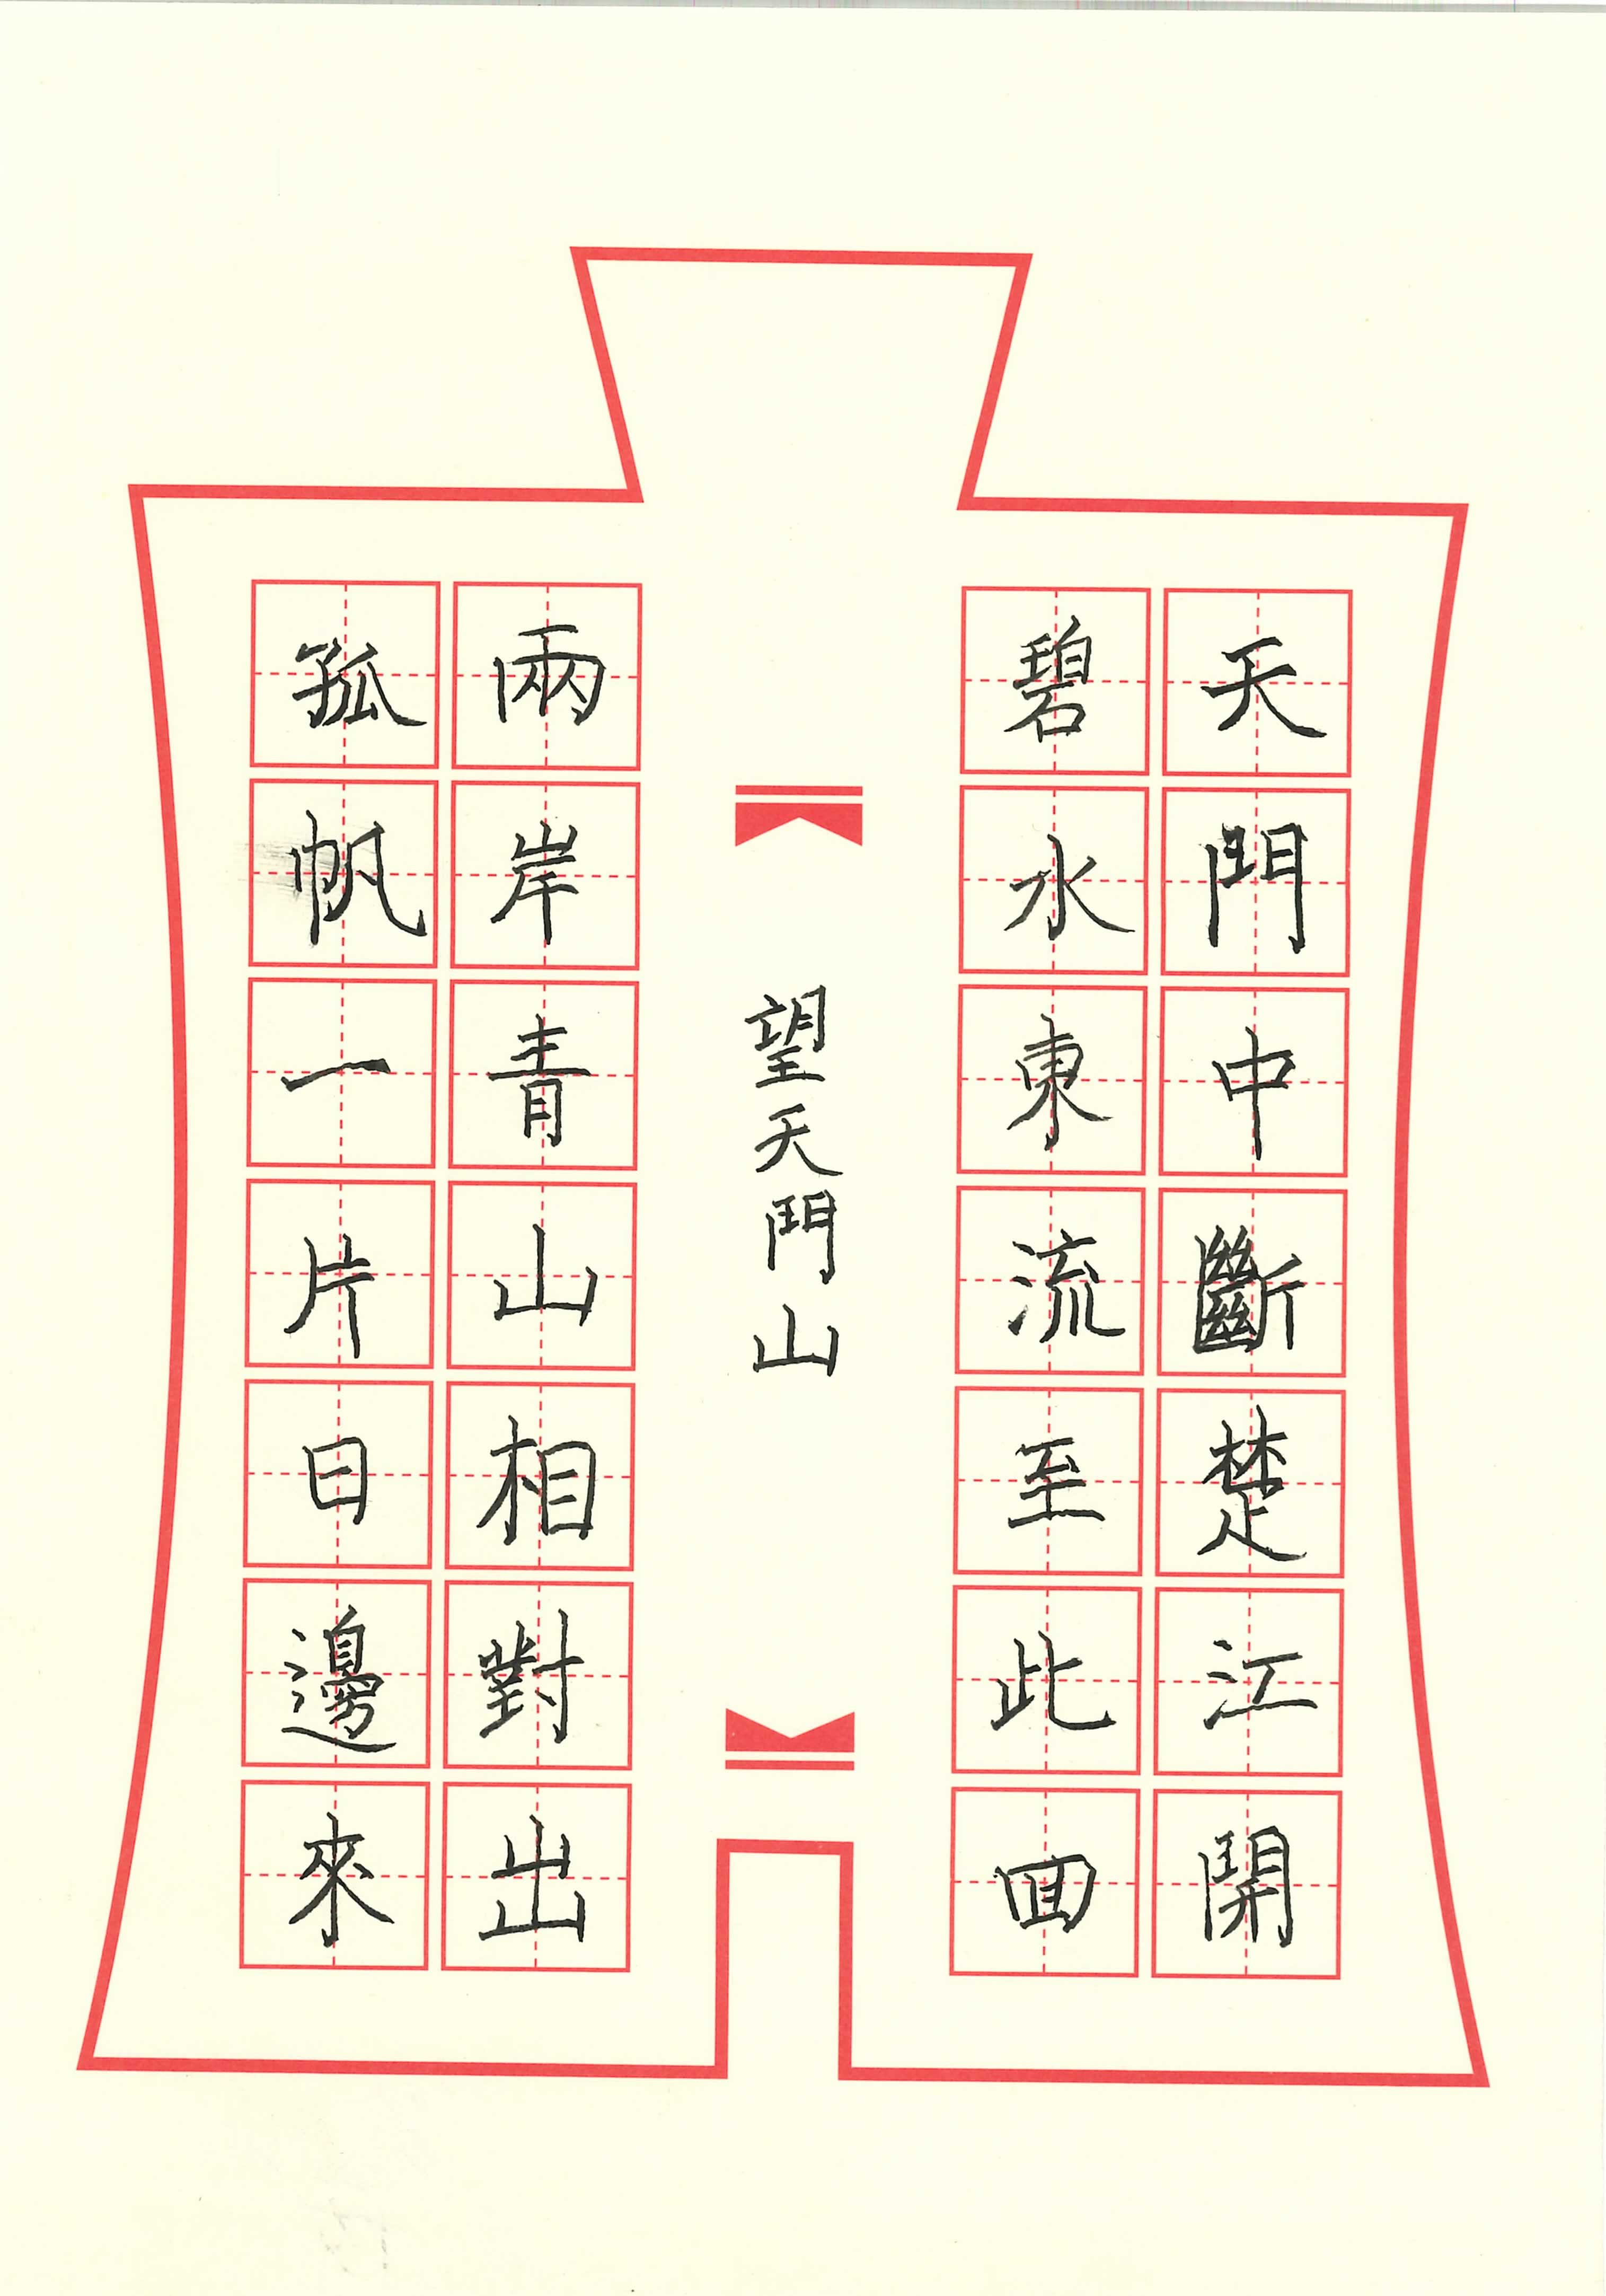 天門中斷楚江開
碧水東流至此回
望天門山
兩岸青山相對出
孤帆一片日邊來